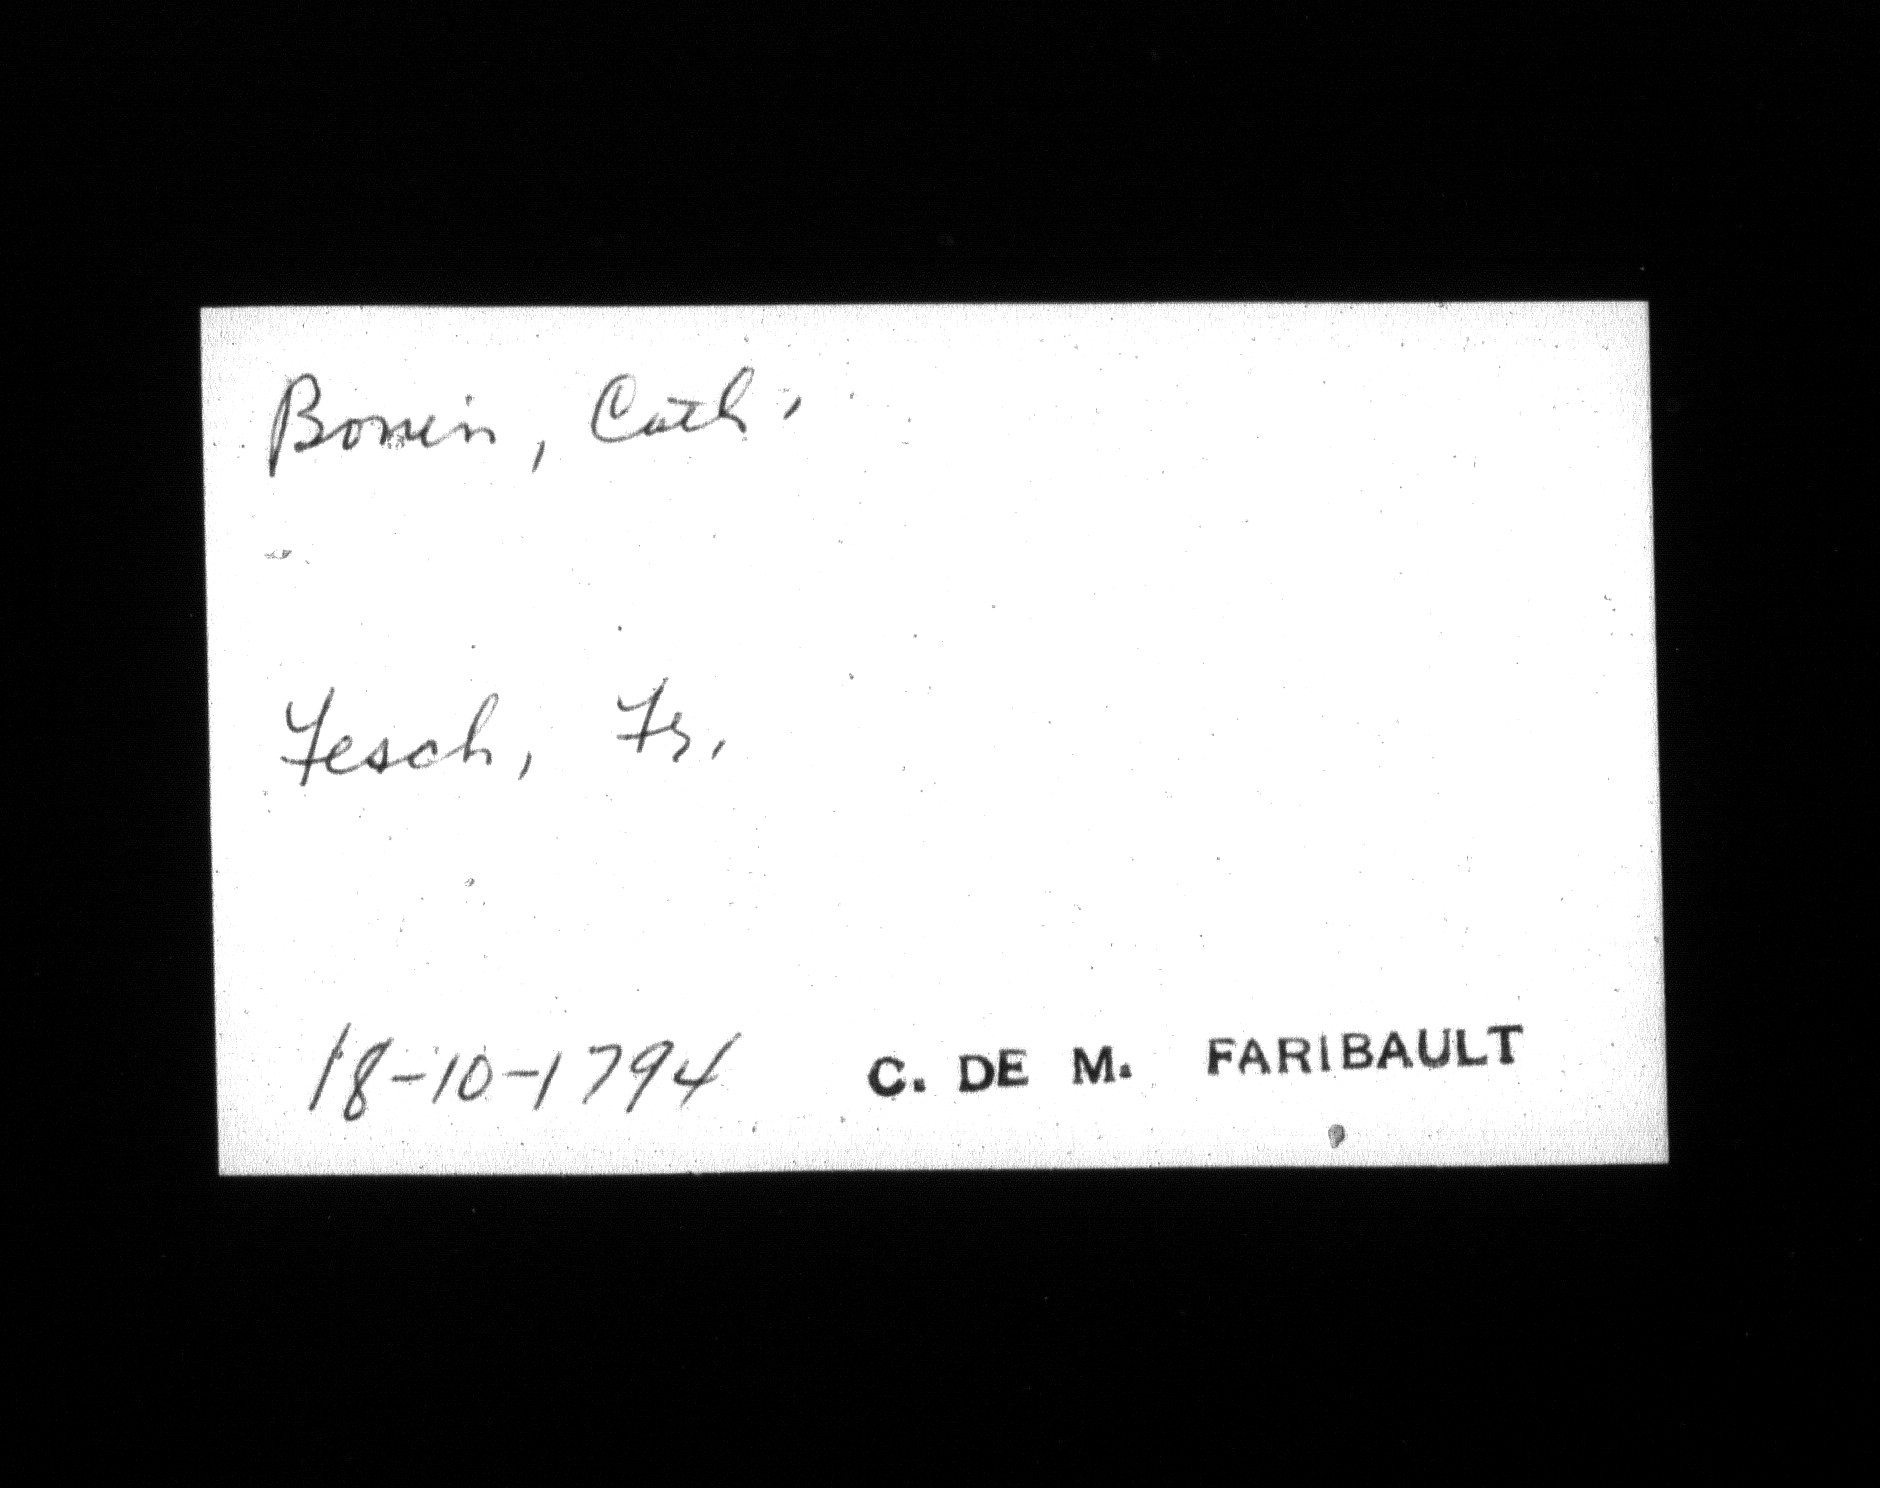 Bonin, Cath.
Fesch, Fr.
18-10-1794 C. DE M. FARIBAULT